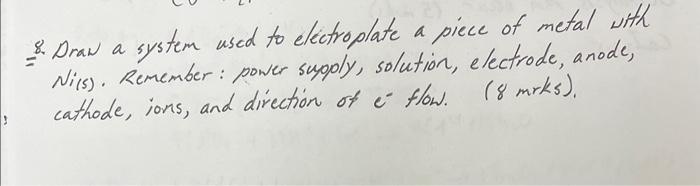 8. Draw a system used to electroplate a piece of metal with
Ni(s). Remember: power supply, solution, electrode, anode,
cathode, ions, and direction of e⁻ flow. (8 mrks).